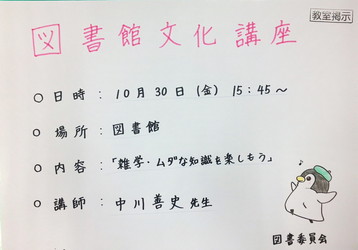 教室掲示
図書館文化講座
○ 日時 : 10月30日(金) 15:45〜
○ 場所 : 図書館
○ 内容 : 「雑学・ムダな知識を楽しもう」
○ 講師 : 中川善史先生
図書委員会